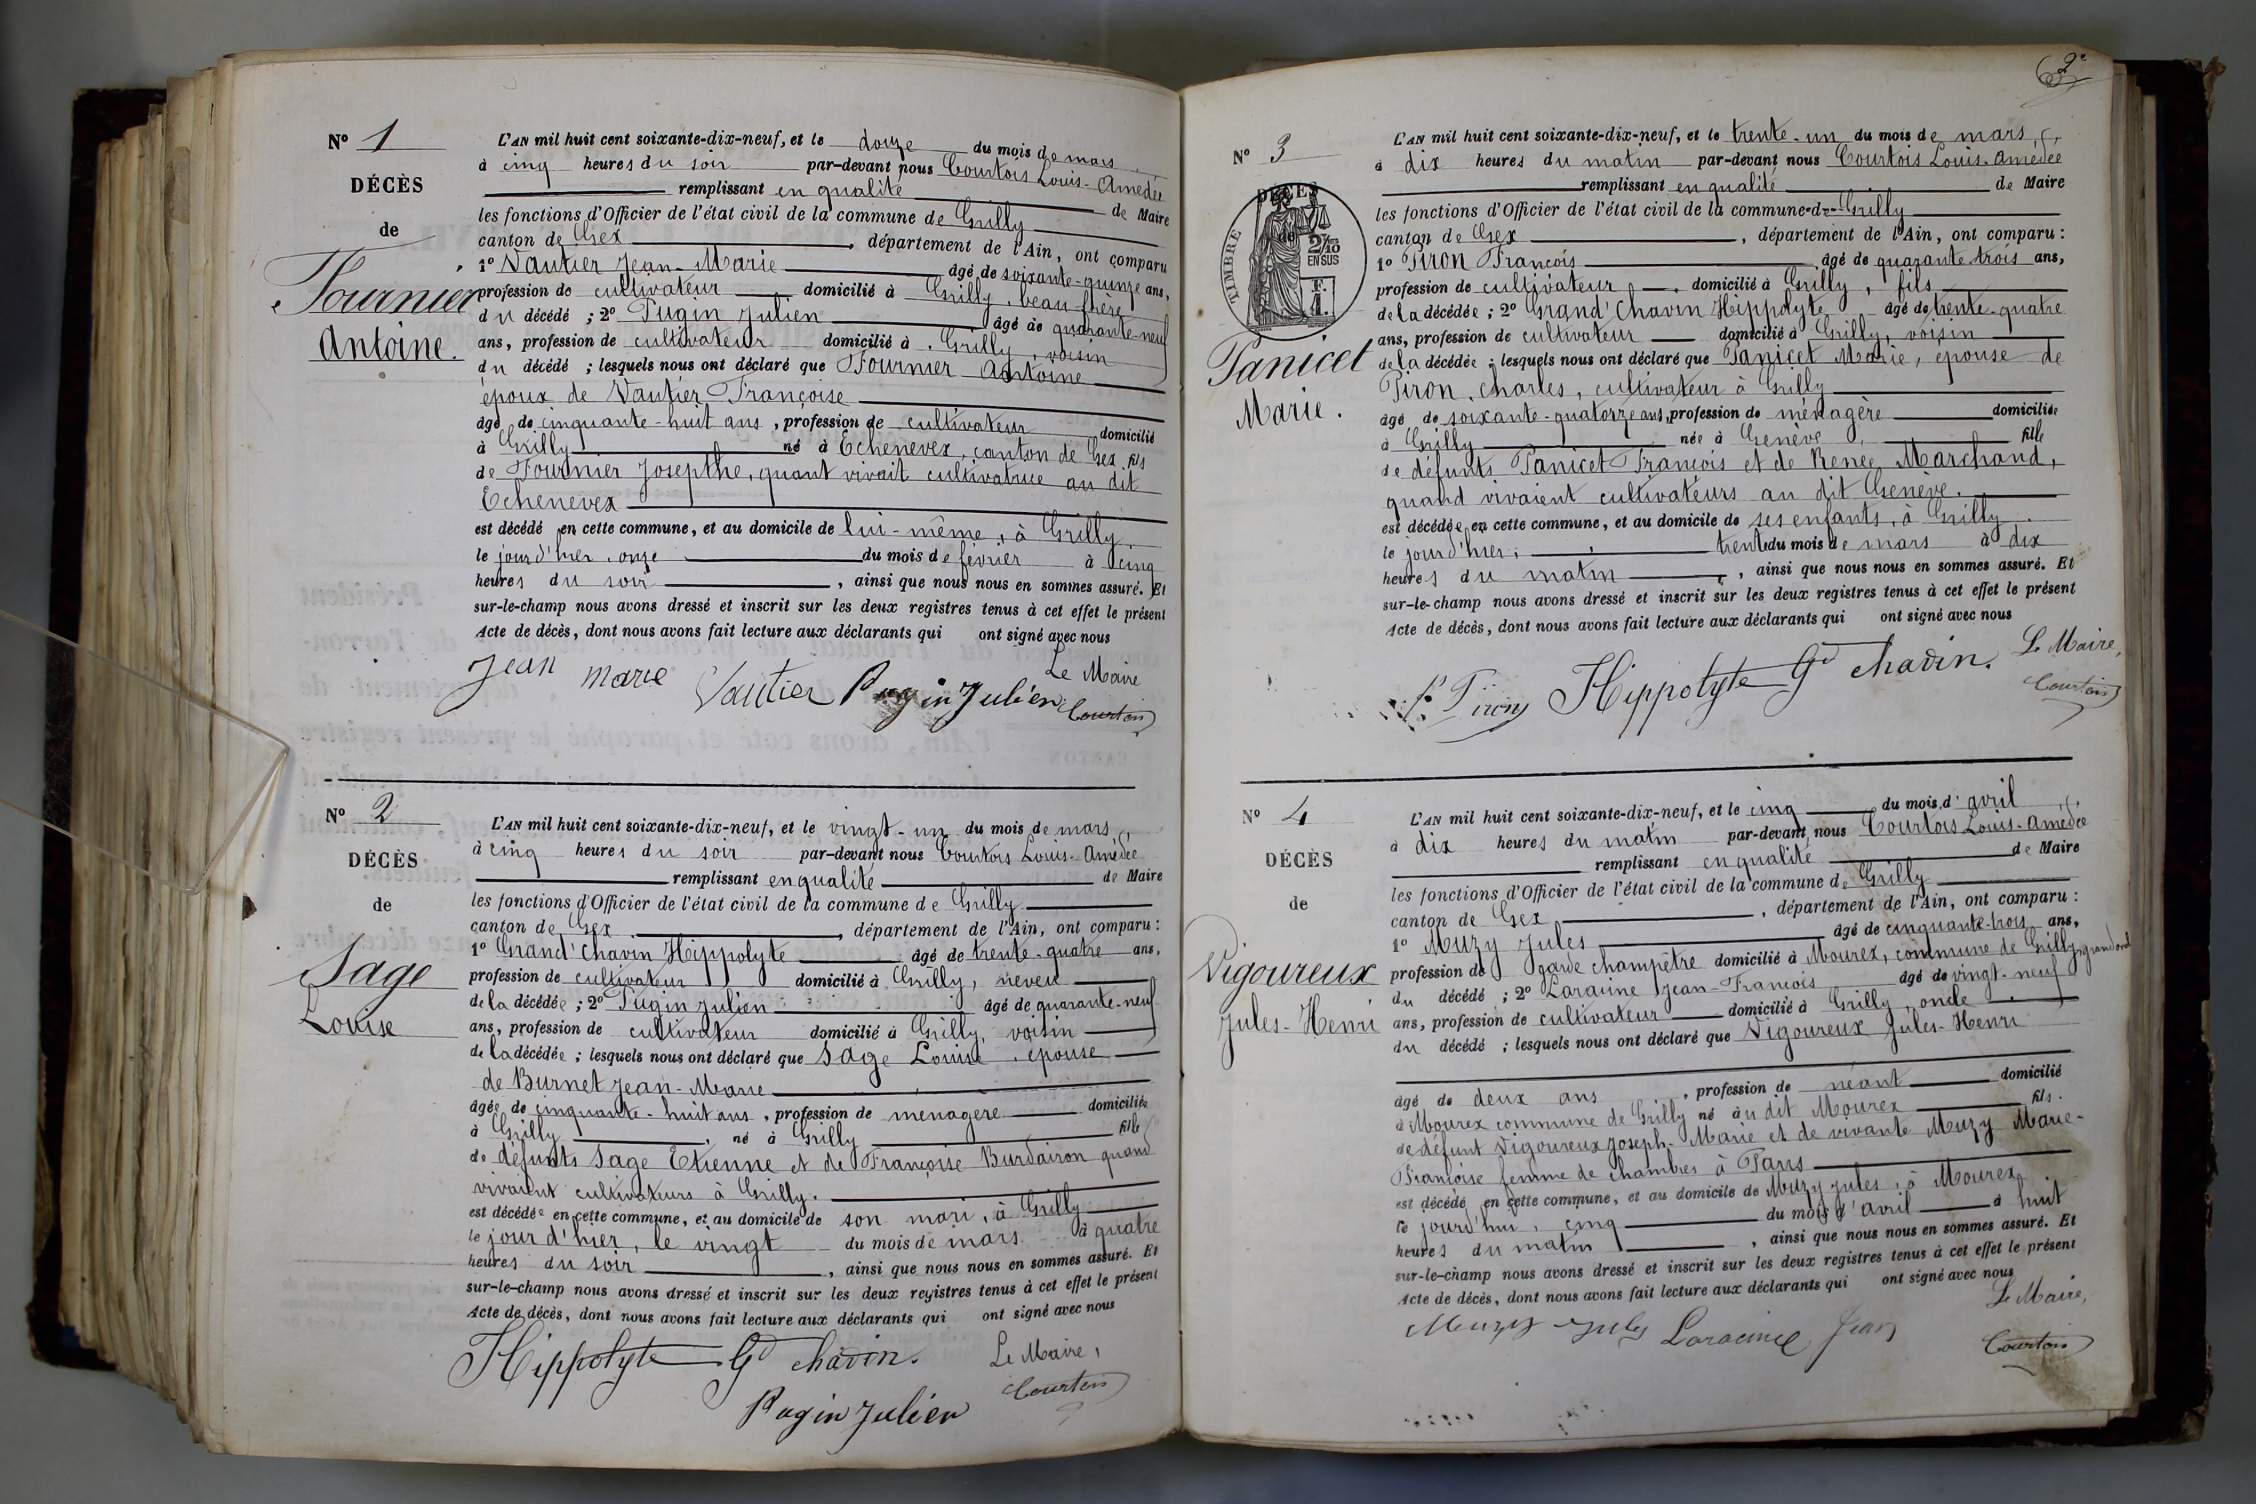 N° 1
DÉCÈS
de
Fournier
Antoine.
L'AN mil huit cent soixante-dix-neuf, et le douze du mois de mars
à cinq heures du soir par-devant nous Courtois Louis-Amédée
remplissant en qualité de Maire
les fonctions d'Officier de l'état civil de la commune de Grilly
canton de Gex, département de l'Ain, ont comparu
1° Vautier Jean-Marie âgé de soixante-quinze ans,
profession de cultivateur domicilié à Grilly, beau-frère
du décédé ; 2° Pugin Julien âgé de quarante-neuf
ans, profession de cultivateur domicilié à Grilly, voisin
du décédé ; lesquels nous ont déclaré que Fournier Antoine
époux de Vautier Françoise
âgé de cinquante-huit ans, profession de cultivateur domicilié
à Grilly né à Echenevex, canton de Gex fils
de Fournier Josepthe, quant vivait cultivatrice au dit
Echenevex
est décédé en cette commune, et au domicile de lui-même, à Grilly,
le jour d'hier onze du mois de février à cinq
heures du soir, ainsi que nous nous en sommes assuré. Et
sur-le-champ nous avons dressé et inscrit sur les deux registres tenus à cet effet le présent
Acte de décès, dont nous avons fait lecture aux déclarants qui ont signé avec nous
Le Maire
Jean marie Vautier Pugin Julien Courtois
N° 2
DÉCÈS
de
Sage
Louise
L'AN mil huit cent soixante-dix-neuf, et le vingt-un du mois de mars,
à cinq heures du soir par-devant nous Courtois Louis-Amédée
remplissant en qualité de Maire
les fonctions d'Officier de l'état civil de la commune de Grilly
canton de Gex, département de l'Ain, ont comparu :
1° Grand'Chavin Hippolyte âgé de trente-quatre ans,
profession de cultivateur domicilié à Grilly, neveu
de la décédée ; 2° Pugin Julien âgé de quarante-neuf
ans, profession de cultivateur domicilié à Grilly, voisin
de la décédée ; lesquels nous ont déclaré que Sage Louise, épouse
de Burnet Jean-Marie
âgée de cinquante-huit ans, profession de ménagère domiciliée
à Grilly, né à Grilly fille
de défunts Sage Etienne et de Françoise Burdairon quand
vivaient cultivateurs à Grilly.
est décédée en cette commune, et au domicile de son mari, à Grilly
le jour d'hier, le vingt du mois de mars à quatre
heures du soir, ainsi que nous nous en sommes assuré. Et
sur-le-champ nous avons dressé et inscrit sur les deux registres tenus à cet effet le présent
Acte de décès, dont nous avons fait lecture aux déclarants qui ont signé avec nous
Hippolyte Gd chavin. Le Maire,
Pugin Julien Courtois
2e
N° 3
DÉCÈS
de
TIMBRE
2/10
EN SUS
F.
1.
Panicet
Marie.
L'AN mil huit cent soixante-dix-neuf, et le trente-un du mois de mars,
à dix heures du matin par-devant nous Courtois Louis-Amédée
remplissant en qualité de Maire
les fonctions d'Officier de l'état civil de la commune de Grilly
canton de Gex, département de l'Ain, ont comparu :
1° Piron François âgé de quarante trois ans,
profession de cultivateur, domicilié à Grilly, fils
de la décédée ; 2° Grand'Chavin Hippolyte âgé de trente-quatre
ans, profession de cultivateur domicilié à Grilly, voisin
de la décédée ; lesquels nous ont déclaré que Panicet Marie, épouse de
Piron Charles, cultivateur à Grilly
âgé de soixante-quatorze ans, profession de ménagère domiciliée
à Grilly née à Genève, fille
de défunts Panicet François et de Renée Marchand,
quand vivaient cultivateurs au dit Genève.
est décédée en cette commune, et au domicile de ses enfants, à Grilly
le jour d'hier, trente du mois de mars à dix
heures du matin, ainsi que nous nous en sommes assuré. Et
sur-le-champ nous avons dressé et inscrit sur les deux registres tenus à cet effet le présent
Acte de décès, dont nous avons fait lecture aux déclarants qui ont signé avec nous
Le Maire,
f. Piron Hippolyte Gd chavin. Courtois
N° 4
DÉCÈS
de
Vigoureux
Jules-Henri
L'AN mil huit cent soixante-dix-neuf, et le cinq du mois d'avril
à dix heures du matin par-devant nous Courtois Louis-Amédée
remplissant en qualité de Maire
les fonctions d'Officier de l'état civil de la commune de Grilly
canton de Gex, département de l'Ain, ont comparu :
1° Muzy Jules âgé de cinquante-trois ans,
profession de garde champêtre domicilié à Mourex, commune de Grilly, grand oncle
du décédé ; 2° Laracine Jean-François âgé de vingt-neuf
ans, profession de cultivateur domicilié à Grilly, oncle
du décédé ; lesquels nous ont déclaré que Vigoureux Jules-Henri
âgé de deux ans, profession de néant domicilié
à Mourex commune de Grilly né au dit Mourex fils
de défunt Vigoureux Joseph-Marie et de vivante Muzy Marie-
Françoise femme de chambres à Paris
est décédé en cette commune, et au domicile de Muzy Jules, à Mourex
le jourd'hui, cinq du mois d'avril à huit
heures du matin, ainsi que nous nous en sommes assuré. Et
sur-le-champ nous avons dressé et inscrit sur les deux registres tenus à cet effet le présent
Acte de décès, dont nous avons fait lecture aux déclarants qui ont signé avec nous
Le Maire,
Muzy Jules Laracine Jean Courtois